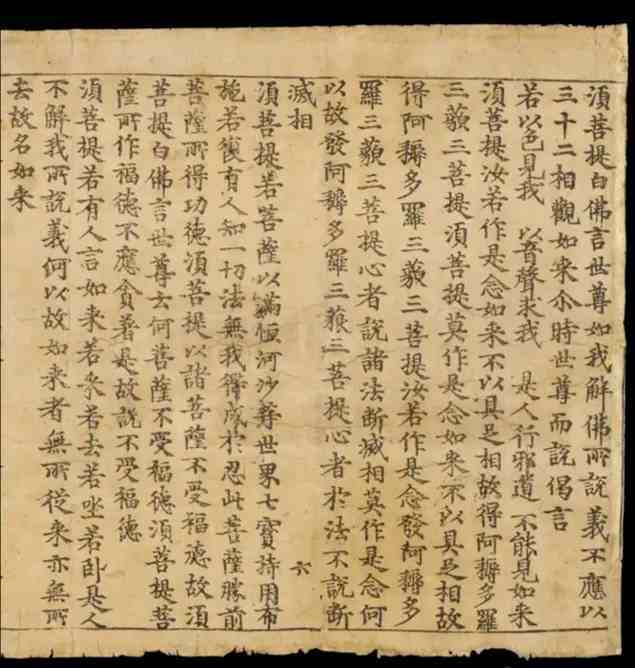 須菩提白佛言世尊如我解佛所說義不應以
三十二相觀如来尒時世尊而說偈言
若以色見我　以音聲求我　是人行邪道　不能見如来
須菩提汝若作是念如来不以具足相故得阿耨多羅
三藐三菩提須菩提莫作是念如来不以具足相故
得阿耨多羅三藐三菩提汝若作是念發阿耨多
羅三藐三菩提心者說諸法断滅相莫作是念何
以故發阿耨多羅三藐三菩提心者於法不說断
滅相　六
須菩提若菩薩以滿恒河沙等世界七寶持用布
施若復有人知一切法無我得成於忍此菩薩勝前
菩薩所得功德須菩提以諸菩薩不受福德故須
菩提白佛言世尊云何菩薩不受福德須菩提菩
薩所作福德不應貪著是故說不受福德
須菩提若有人言如来若来若去若坐若卧是人
不解我所說義何以故如来者無所從来亦無所
去故名如来